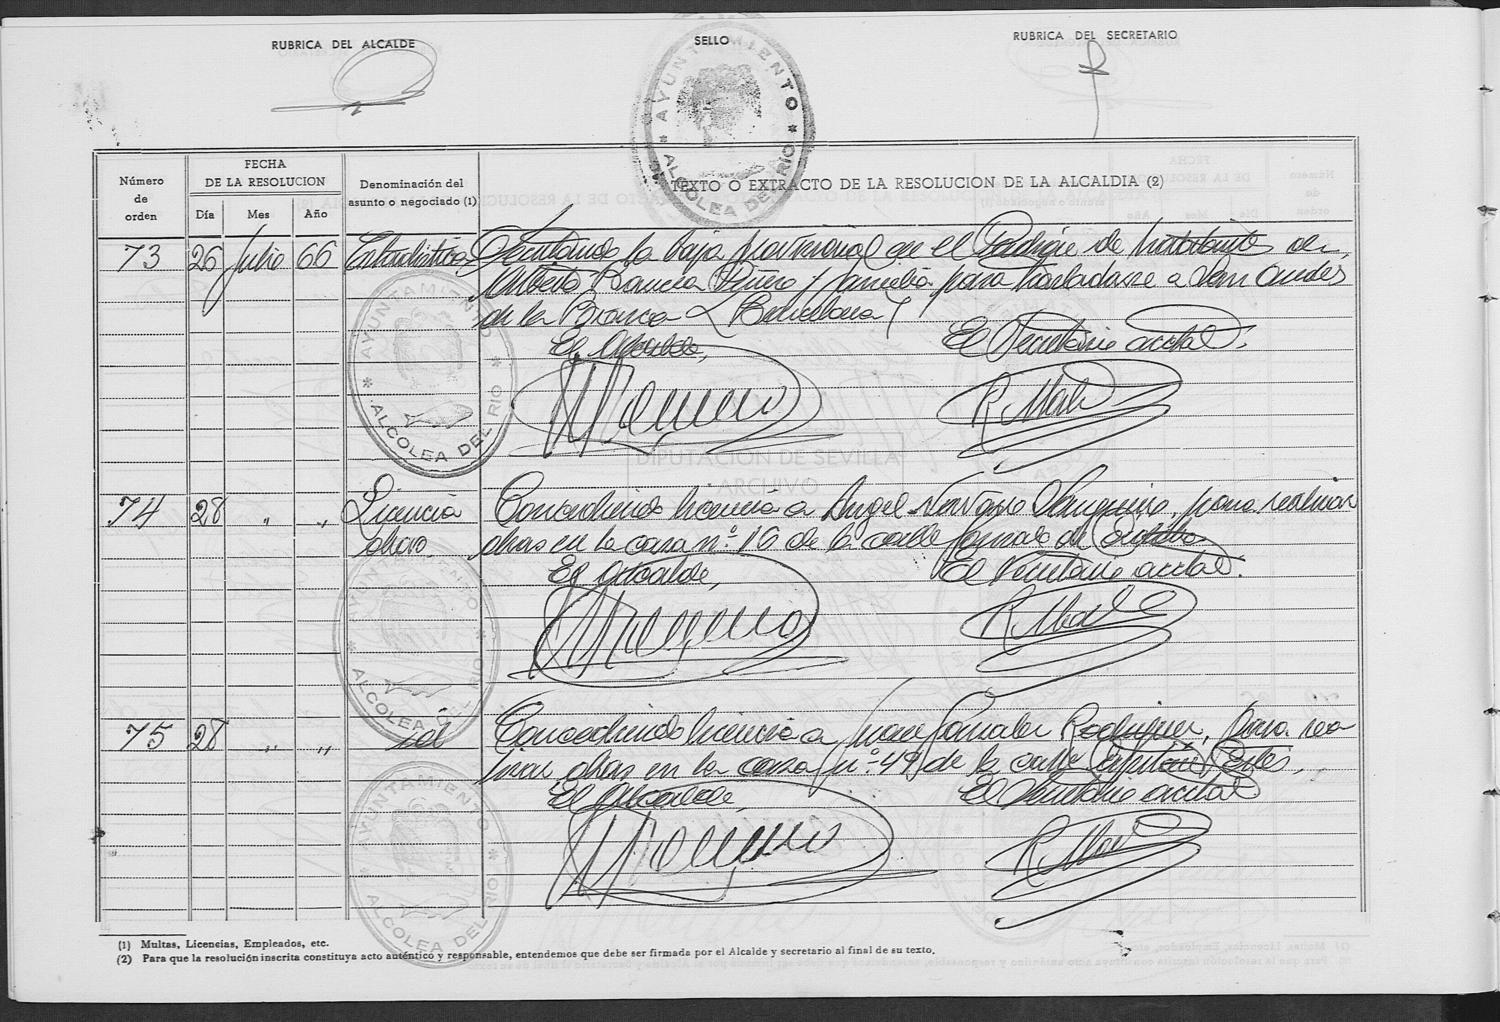 RUBRICA DEL ALCALDE
SELLO
RUBRICA DEL SECRETARIO
AYUNTAMIENTO
* ALCOLEA DEL RIO *
Número de orden
FECHA DE LA RESOLUCION
Día Mes Año
Denominación del asunto o negociado (1)
TEXTO O EXTRACTO DE LA RESOLUCION DE LA ALCALDIA (2)
73 26 Julio 66 Estadística
la baja provisional en el Padrón de habitantes de
Alberto García y familia para trasladarse a San Andrés
de la Barca (Barcelona)
El Alcalde,
El Secretario acctal.
AYUNTAMIENTO
* ALCOLEA DEL RIO *
DIPUTACIÓN DE SEVILLA
ARCHIVO
74 28 " " Licencia obras
Concediendo licencia a Angel Navarro para realizar
obras en la casa nº 16 de la calle Gonzalo de
El Alcalde,
El Secretario acctal.
AYUNTAMIENTO
* ALCOLEA DEL RIO *
75 28 " " id
Concediendo licencia a Juan Gonzalez Rodriguez, para rea
lizar obras en la casa nº 49 de la calle Capitán
El Alcalde,
El Secretario acctal
AYUNTAMIENTO
* ALCOLEA DEL RIO *
(1) Multas, Licencias, Empleados, etc.
(2) Para que la resolución inscrita constituya acto auténtico y responsable, entendemos que debe ser firmada por el Alcalde y secretario al final de su texto.